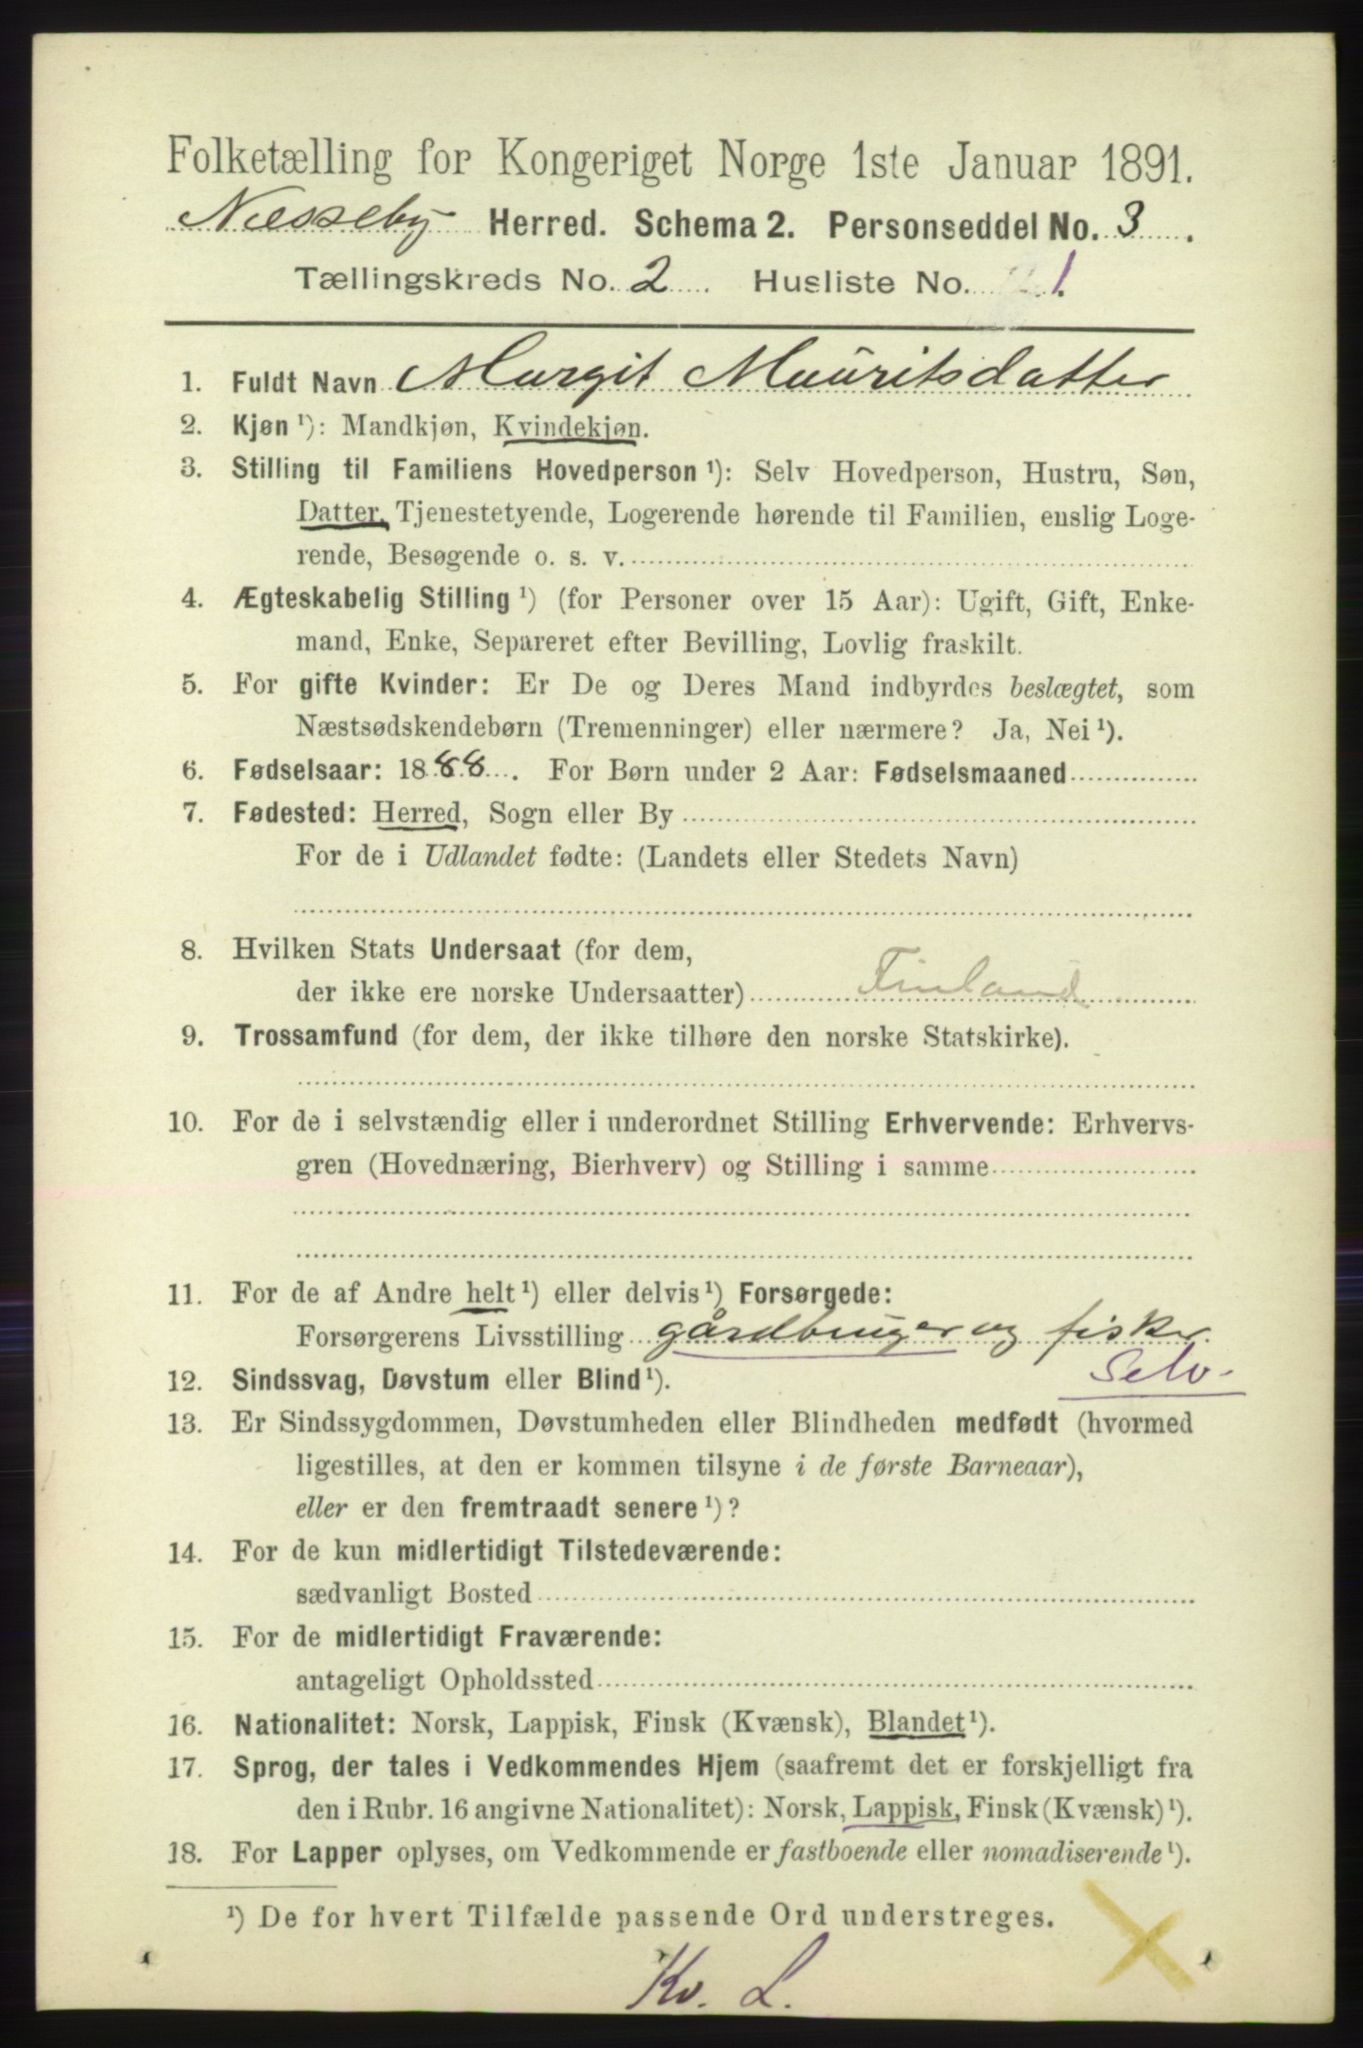 Folketælling for Kongeriget Norge 1ste Januar 1891.
Næsseby Herred. Schema 2. Personseddel No. 3.
Tællingskreds No. 2. Husliste No. 1.
1. Fuldt Navn Margit Mauritsdatter
2. Kjøn ¹): Mandkjøn, Kvindekjøn.
3. Stilling til Familiens Hovedperson ¹): Selv Hovedperson, Hustru, Søn,
Datter, Tjenestetyende, Logerende hørende til Familien, enslig Loge-
rende, Besøgende o. s. v.
4. Ægteskabelig Stilling ¹) (for Personer over 15 Aar): Ugift, Gift, Enke-
mand, Enke, Separeret efter Bevilling, Lovlig fraskilt.
5. For gifte Kvinder: Er De og Deres Mand indbyrdes beslægtet, som
Næstsødskendebørn (Tremenninger) eller nærmere? Ja, Nei ¹).
6. Fødselsaar: 1888. For Børn under 2 Aar: Fødselsmaaned
7. Fødested: Herred, Sogn eller By
For de i Udlandet fødte: (Landets eller Stedets Navn)
8. Hvilken Stats Undersaat (for dem,
der ikke ere norske Undersaatter) Finland
9. Trossamfund (for dem, der ikke tilhøre den norske Statskirke).
10. For de i selvstændig eller i underordnet Stilling Erhvervende: Erhvervs-
gren (Hovednæring, Bierhverv) og Stilling i samme
11. For de af Andre helt ¹) eller delvis ¹) Forsørgede:
Forsørgerens Livsstilling gårdbruger og fisker.
Selv.
12. Sindssvag, Døvstum eller Blind ¹).
13. Er Sindssygdommen, Døvstumheden eller Blindheden medfødt (hvormed
ligestilles, at den er kommen tilsyne i de første Barneaar),
eller er den fremtraadt senere ¹)?
14. For de kun midlertidigt Tilstedeværende:
sædvanligt Bosted
15. For de midlertidigt Fraværende:
antageligt Opholdssted
16. Nationalitet: Norsk, Lappisk, Finsk (Kvænsk), Blandet ¹).
17. Sprog, der tales i Vedkommendes Hjem (saafremt det er forskjelligt fra
den i Rubr. 16 angivne Nationalitet): Norsk, Lappisk, Finsk (Kvænsk) ¹).
18. For Lapper oplyses, om Vedkommende er fastboende eller nomadiserende ¹).
¹) De for hvert Tilfælde passende Ord understreges.
Kv. L.